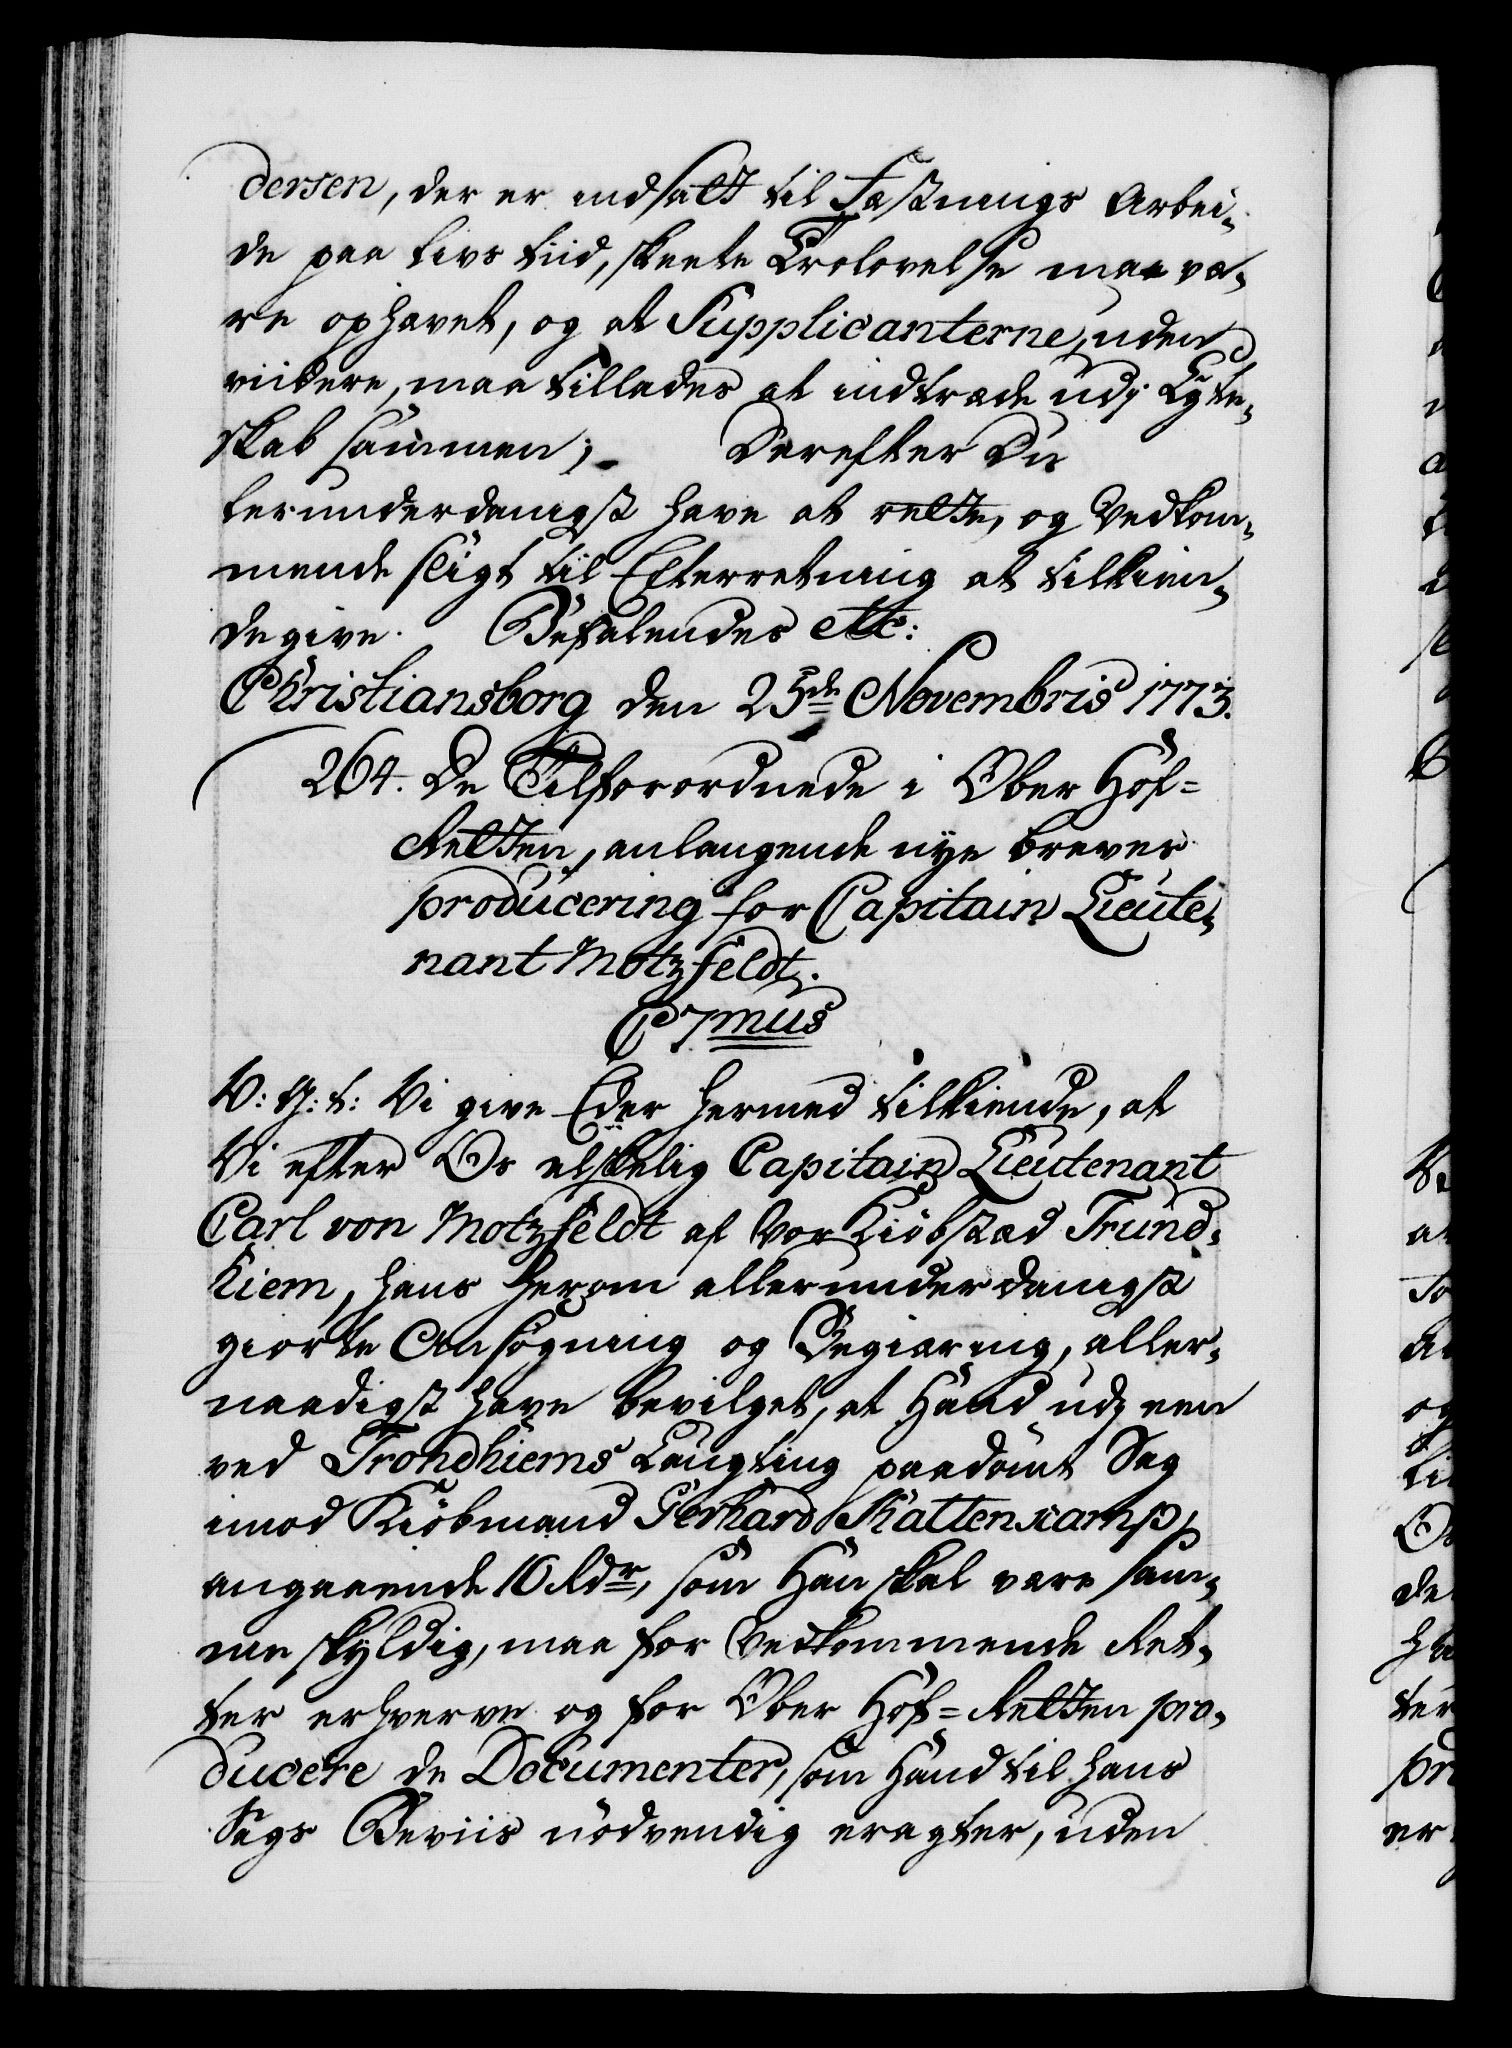 dersen, der er indsatt til Fæstnings Arbei-
de paa Livs tiid, skeete Trolovelse maa væ-
re ophævet, og at Supplicanterne, uden
viidere, maa tillades at indtræde udj Egte-
skab sammen; Derefter Du
terunderdanigst have at rette, og Vedkom-
mende sligt til Efterretning at tilkien-
degive. Befalendes etc:
Christiansborg den 25de Novembris 1773.
264. De Tilforordnede i Ober Hof-
Retten, anlangende nye brever
producering for Capitain Lieute-
nant Motzfeldt.
C 7mus
V: G: t: Vi give Eder hermed tilkiende, at
Vi efter Os elskelig Capitain Lieutenant
Carl von Motzfeldt af Vor Kiøbstæd Trund-
hiem, hans herom allerunderdanigst
giorte Ansøgning og Begiæring, aller-
naadigst have bevilget, at Hand udj een
ved Trondhiems Laugting paadømt Sag
imod Kiøbmand Gerhard Kattenscamp,
angaaende 10 Rdr, som Han skal være sam-
me skyldig, maa for Vedkommende Ret-
ter erhverve og for Ober Hof-Retten pro-
ducere de Documenter, som Hand til hans
Sags Beviis nødvendig eragter, uden